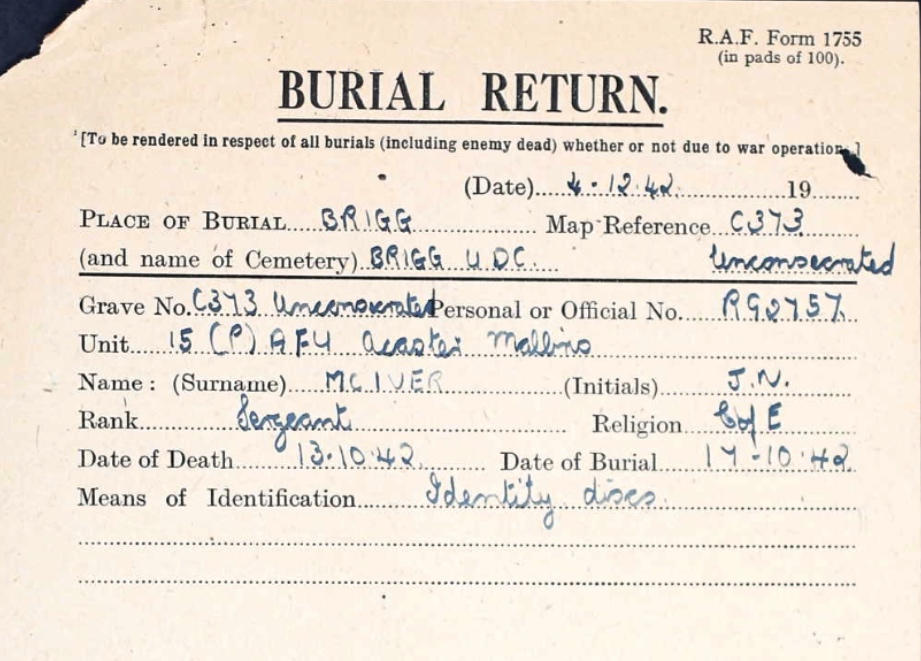 R.A.F. Form 1755
(in pads of 100).
BURIAL RETURN.
[To be rendered in respect of all burials (including enemy dead) whether or not due to war operation.]
(Date)....4.12.42...............19........
PLACE OF BURIAL....BRIGG............ Map Reference..C373........
(and name of Cemetery).BRIGG U.D.C..... Unconsecrated
Grave No.C373 Unconsecrated Personal or Official No.....R92757..
Unit....15 (P) AFU Acaster Malbis..............................
Name: (Surname)....MCIVER..............(Initials)........J.N.........
Rank............Sergeant........................ Religion....C of E.........
Date of Death........13.10.42......... Date of Burial.....17-10-42
Means of Identification........Identity discs.....................